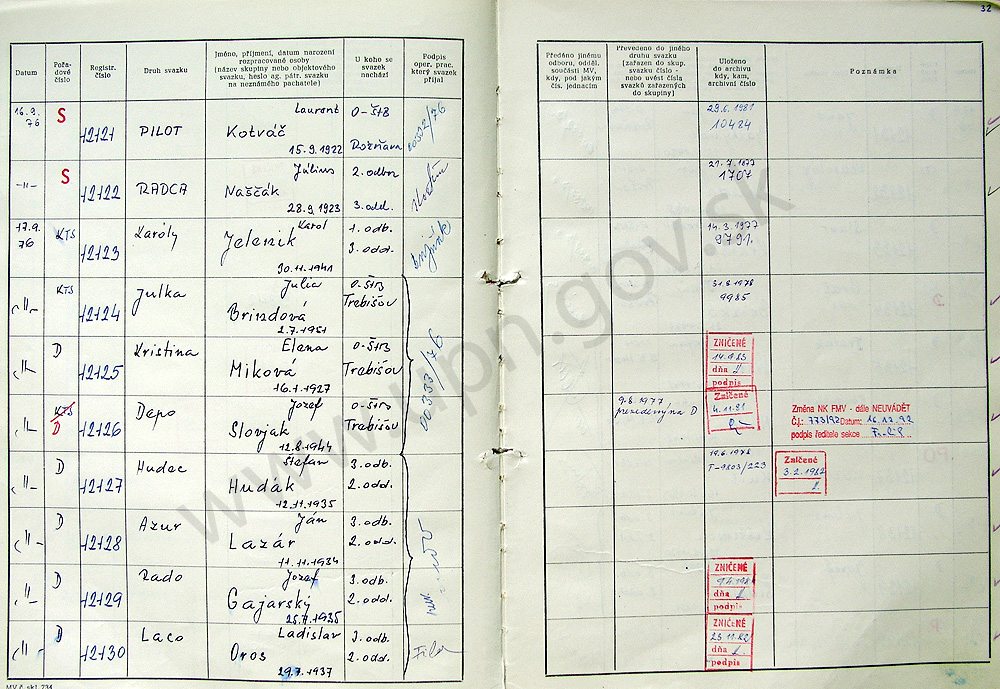 32
Datum
Pořa-
dové
číslo
Registr.
číslo
Druh svazku
Jméno, příjmení, datum narození
rozpracované osoby
(název skupiny nebo objektového
svazku, heslo ag. pátr. svazku
na neznámého pachatele)
U koho se
svazek
nachází
Podpis
oper. prac.
který svazek
přijal
Předáno jinému
odboru, odděl.
součásti MV,
kdy, pod jakým
čís. jednacím
Převedeno do jiného
druhu svazku
[zařazen do skup.
svazku číslo -
nebo uvést čísla
svazků zařazených
do skupiny]
Uloženo
do archivu
kdy, kam,
archivní číslo
Poznámka
16.9.
76
S
12121
PILOT
Laurent
Kotváč
15.9.1922
O-ŠtB
Rožňava
00322/76
29.6.1981
10484
-"-
S
12122
RADCA
Július
Naščák
28.9.1923
2. odbor
3. odd.
21.7.1977
1707
17.9.
76
KTS
12123
Karoly
Karol
Jelenik
30.11.1941
1. odb.
3. odd.
14.3.1977
9791.
-"-
KTS
12124
Julka
Julia
Brindová
2.7.1951
O-ŠtB
Trebišov
31.8.1978
9985
-"-
D
12125
Kristina
Elena
Miková
16.1.1927
O-ŠtB
Trebišov
00333/76
ZNIČENÉ
14.9.83
dňa
podpis
-"-
KTS
D
12126
Depo
Jozef
Slovjak
12.8.1944
O-ŠtB
Trebišov
9.8.1977
prevedený na D
Zničené
4.11.81
Změna NK FMV - dále NEUVÁDĚT
Č.j.: 773/92 Datum: 16.12.92
podpis ředitele sekce
-"-
D
12127
Hudec
Štefan
Hudák
12.11.1935
3. odb.
2. odd.
19.6.1978
T-9803/223
Zničené
3.2.1982
-"-
D
12128
Azur
Ján
Lazár
11.11.1934
3. odb.
2. odd.
-"-
D
12129
Rado
Jozef
Gajarský
25.7.1935
3. odb.
2. odd.
ZNIČENÉ
dňa
podpis
-"-
D
12130
Laco
Ladislav
Oros
29.7.1937
3. odb.
2. odd.
ZNIČENÉ
23.11.82
dňa
podpis
MV č. skl. 734
www.upn.gov.sk